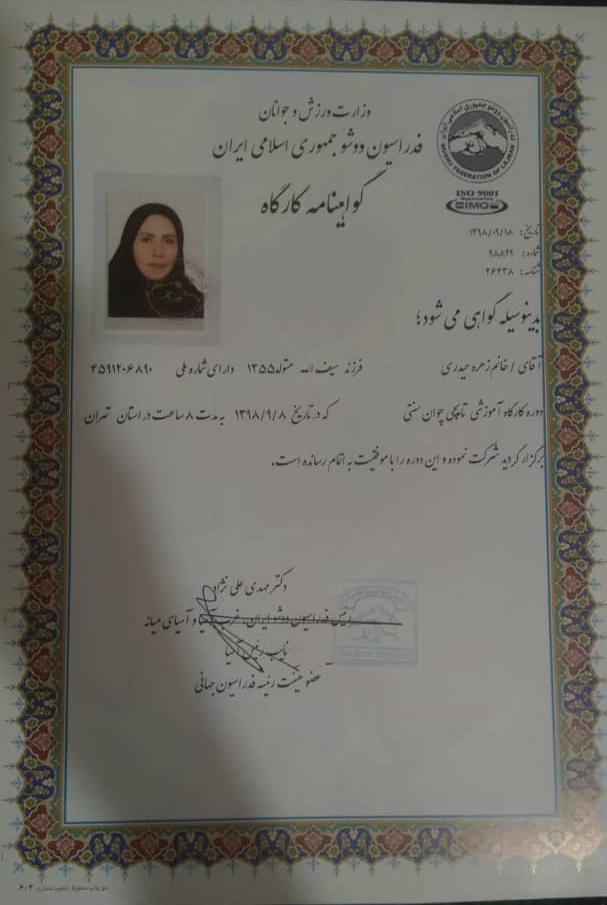 وزارت ورزش و جوانان
فدراسیون ووشو جمهوری اسلامی ایران
گواهینامه کارگاه
WUSHU FEDERATION OF I.R.IRAN
ISO 9001
IMQ
تاریخ: ۱۳۹۸/۰۹/۱۸
شماره: ۹۸۸۲۹
شناسه: ۲۶۴۳۸
بدینوسیله گواهی می شود؛
آقای / خانم زهره حیدری فرزند سیف الله متولد ۱۳۵۵ دارای شماره ملی ۴۵۹۱۲۰۶۸۹۰
دوره کارگاه آموزشی تایچی چوان سنتی که در تاریخ ۱۳۹۸/۹/۸ به مدت ۸ ساعت در استان تهران
برگزار گردید شرکت نموده و این دوره را با موفقیت به اتمام رسانده است.
دکتر مهدی علی نژاد
رئیس فدراسیون ووشو ایران، غرب آسیا و آسیای میانه
نایب رئیس آسیا
عضو هیئت رئیسه فدراسیون جهانی